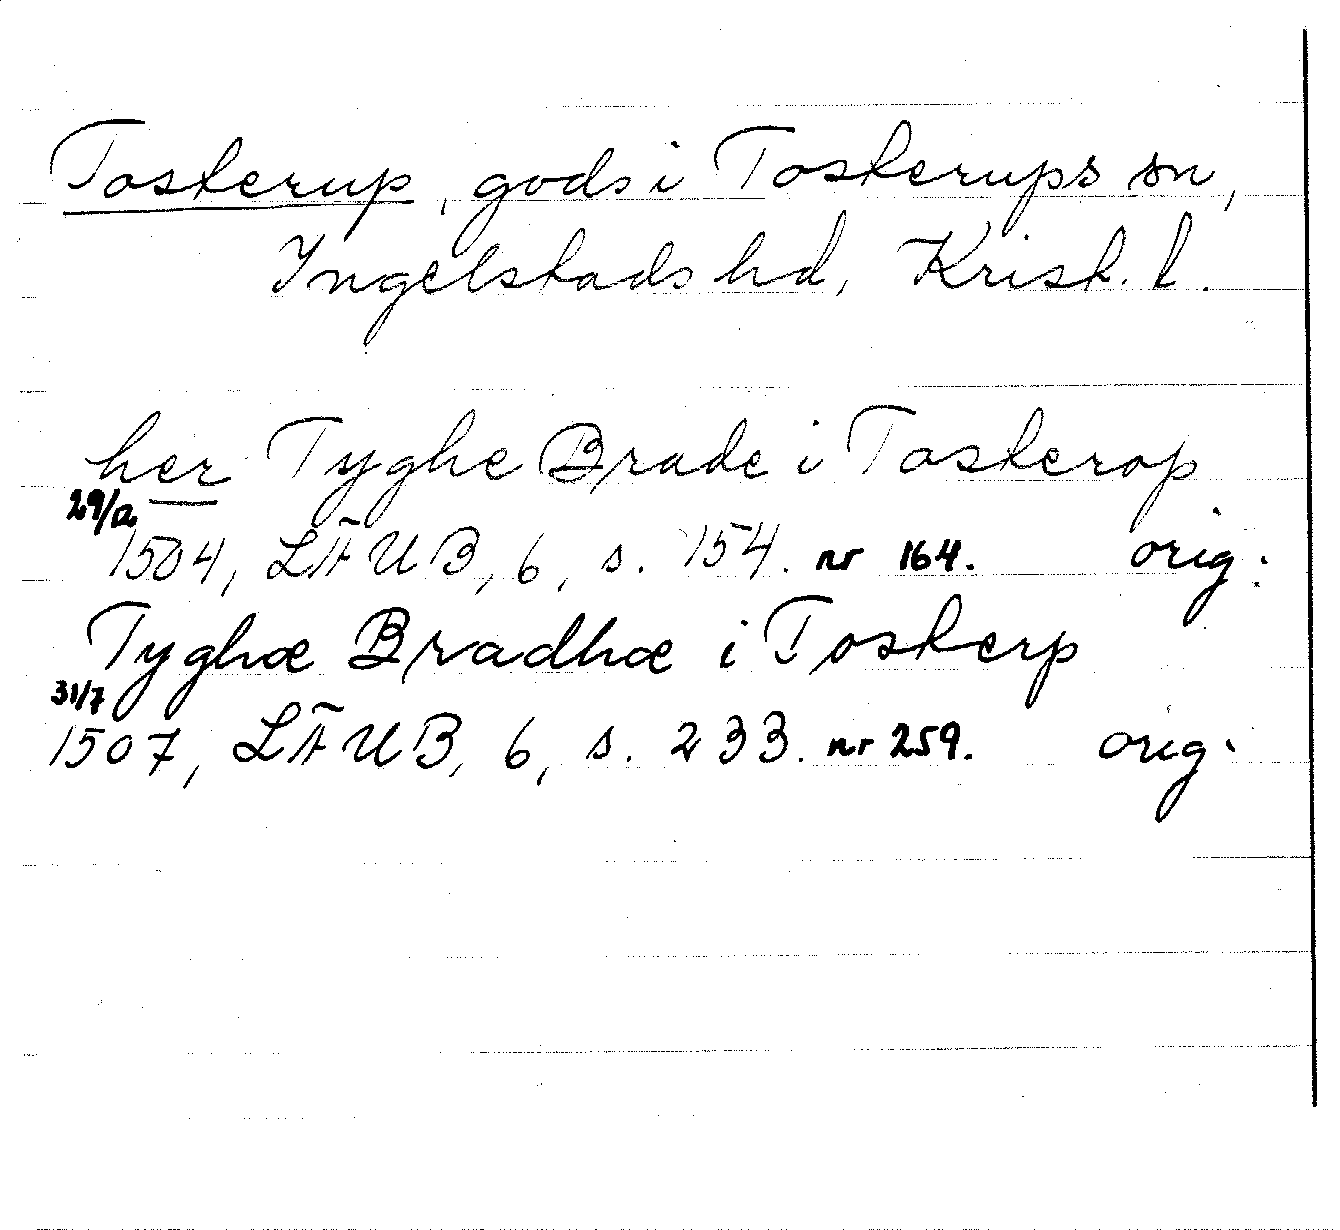 Tosterup, gods i Tosterups sn,
Ingelstads hd, Krist. l.
her Tyghe Brade i Tosterop
29/12
1504, LÄUB, 6, s. 154. nr 164. orig.
Tyghæ Bradhæ i Tosterp
31/7
1507, LÄUB, 6, s. 233. nr 259. orig.